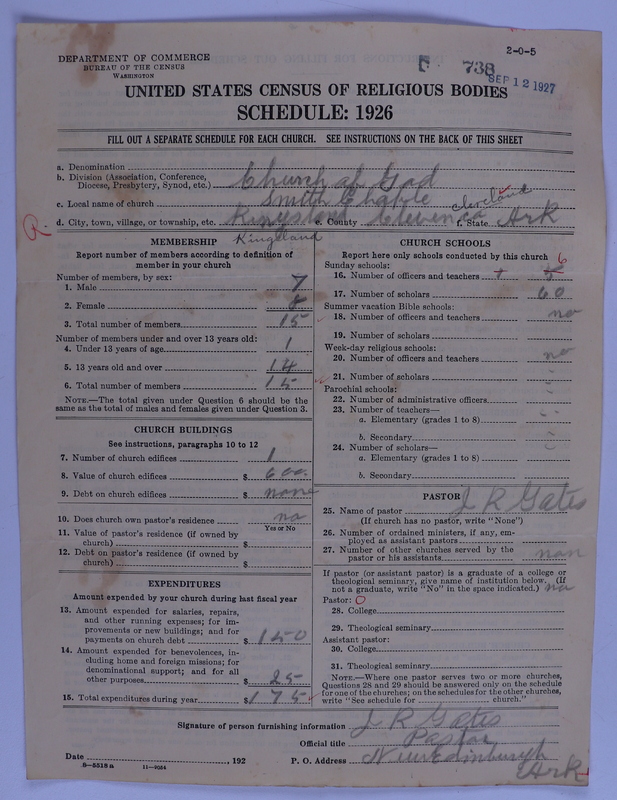 2-0-5
DEPARTMENT OF COMMERCE
BUREAU OF THE CENSUS
WASHINGTON
738
SEP 12 1927
UNITED STATES CENSUS OF RELIGIOUS BODIES
SCHEDULE: 1926
FILL OUT A SEPARATE SCHEDULE FOR EACH CHURCH. SEE INSTRUCTIONS ON THE BACK OF THIS SHEET
a. Denomination
b. Division (Association, Conference, Diocese, Presbytery, Synod, etc.) Church of God
c. Local name of church Smith Chaple
Cleveland
d. City, town, village, or township, etc. e. County f. State Ark
Kingsland
MEMBERSHIP
Report number of members according to definition of
member in your church
Number of members, by sex:
1. Male 7
2. Female 8
3. Total number of members 15
Number of members under and over 13 years old:
4. Under 13 years of age 1
5. 13 years old and over 14
6. Total number of members 15
NOTE.—The total given under Question 6 should be
same as the total of males and females given under Question 3.
CHURCH BUILDINGS
See instructions, paragraphs 10 to 12
7. Number of church edifices 1
8. Value of church edifices $ 600
9. Debt on church edifices $ none
10. Does church own pastor's residence no
Yes or No
11. Value of pastor's residence (if owned by
church) $
12. Debt on pastor's residence (if owned by
church) $
EXPENDITURES
Amount expended by your church during last fiscal year
13. Amount expended for salaries, repairs,
and other running expenses; for im-
provements or new buildings; and for
payments on church debt $ 150
14. Amount expended for benevolences, in-
cluding home and foreign missions; for
denominational support; and for all
other purposes $ 25
15. Total expenditures during year $ 175
CHURCH SCHOOLS
Report here only schools conducted by this church
Sunday schools: 6
16. Number of officers and teachers
17. Number of scholars 60
Summer vacation Bible schools:
18. Number of officers and teachers no
19. Number of scholars
Week-day religious schools:
20. Number of officers and teachers no
21. Number of scholars
Parochial schools:
22. Number of administrative officers
23. Number of teachers—
a. Elementary (grades 1 to 8)
b. Secondary
24. Number of scholars—
a. Elementary (grades 1 to 8)
b. Secondary
PASTOR
25. Name of pastor J R Gates
(If church has no pastor, write "None")
26. Number of ordained ministers, if any, em-
ployed as assistant pastors
27. Number of other churches served by the
pastor or his assistants nan
If pastor (or assistant pastor) is a graduate of a college or
theological seminary, give name of institution below. (If
not a graduate, write "No" in the space indicated.) no
Pastor: O
28. College
29. Theological seminary
Assistant pastor:
30. College
31. Theological seminary
NOTE.—Where one pastor serves two or more churches,
Questions 28 and 29 should be answered only on the schedule
for one of the churches; on the schedules for the other churches,
write "See schedule for church."
Signature of person furnishing information J R Gates
Official title Pastor
Date , 192 P. O. Address New Edinburgh
Ark
8-5518a 11-9034